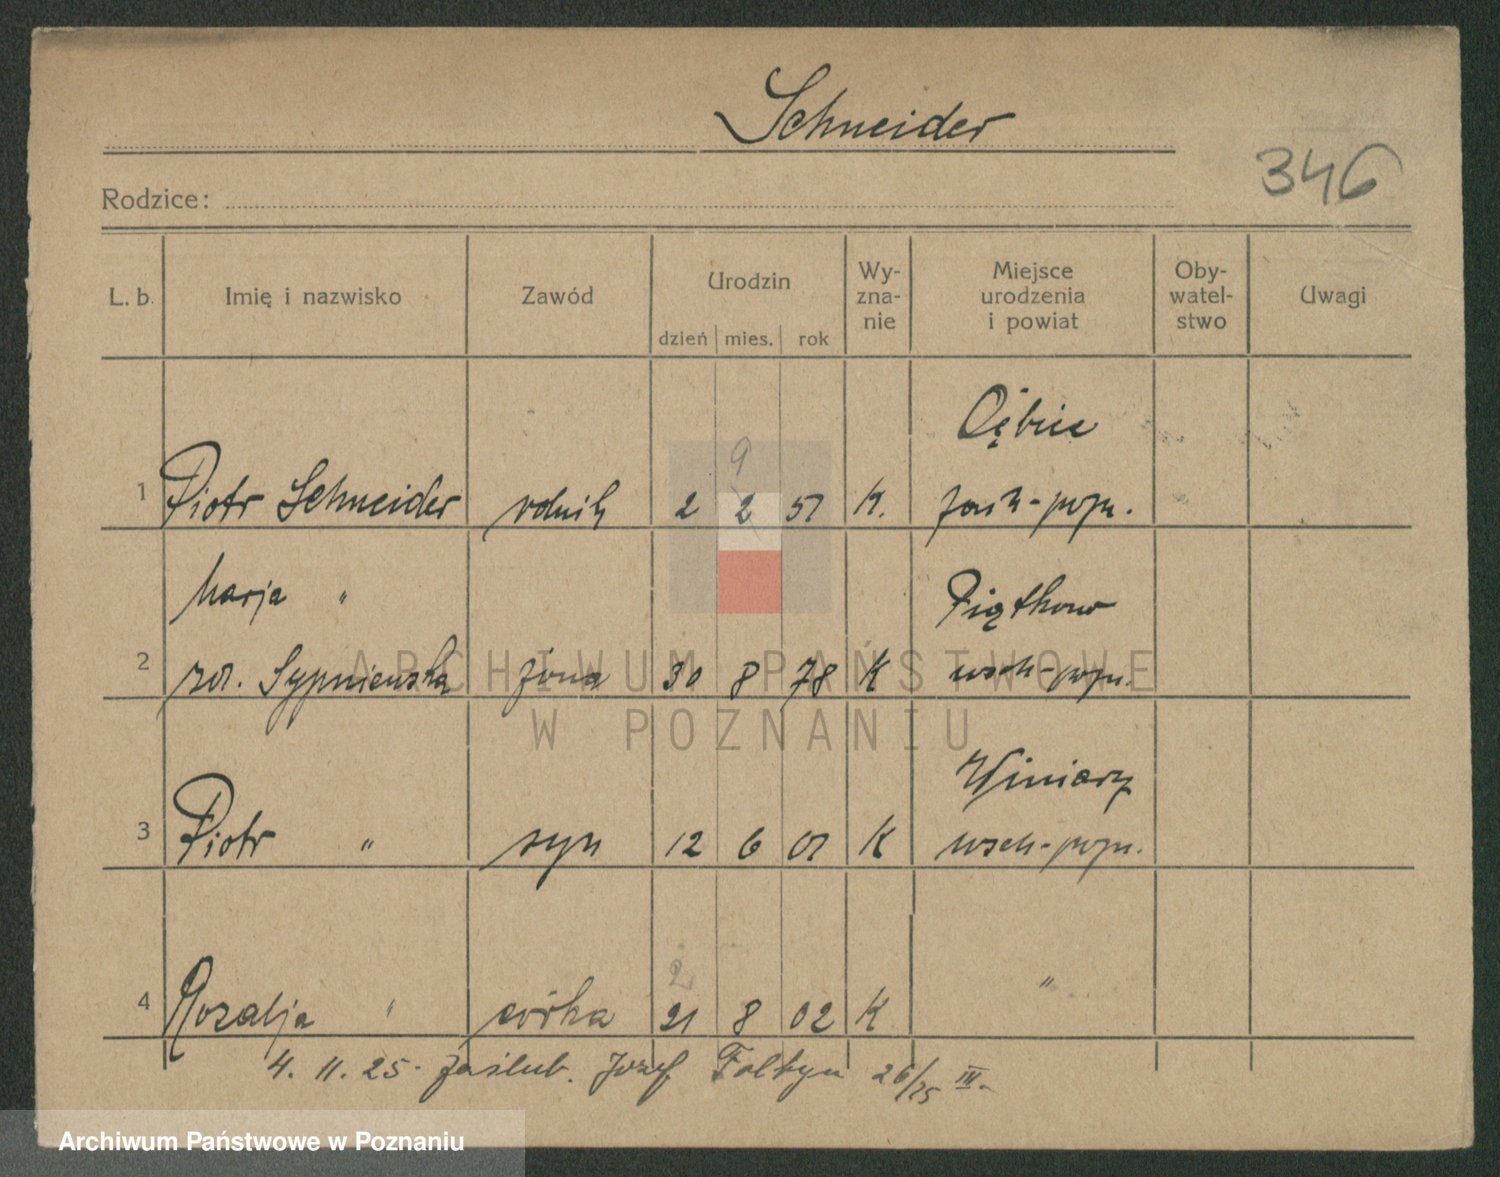 Schneider
346
Rodzice:
L. b. Imię i nazwisko Zawód Urodzin dzień mies. rok Wy-zna-nie Miejsce urodzenia i powiat Oby-watel-stwo Uwagi
9
1 Piotr Schneider rolnik 2 2 57 K.
2 Marja "
Piątkowo
zd. Sypniewska żona 30 8 78 K wsch-pozn.
Winiary
3 Piotr " syn 12 6 01 K wsch-pozn.
2
4 Rozalja " córka 21 8 02 K "
4. 11. 25. zaślub. Józef Foltyn 26/25 III.
ARCHIWUM PAŃSTWOWE
W POZNANIU
Archiwum Państwowe w Poznaniu